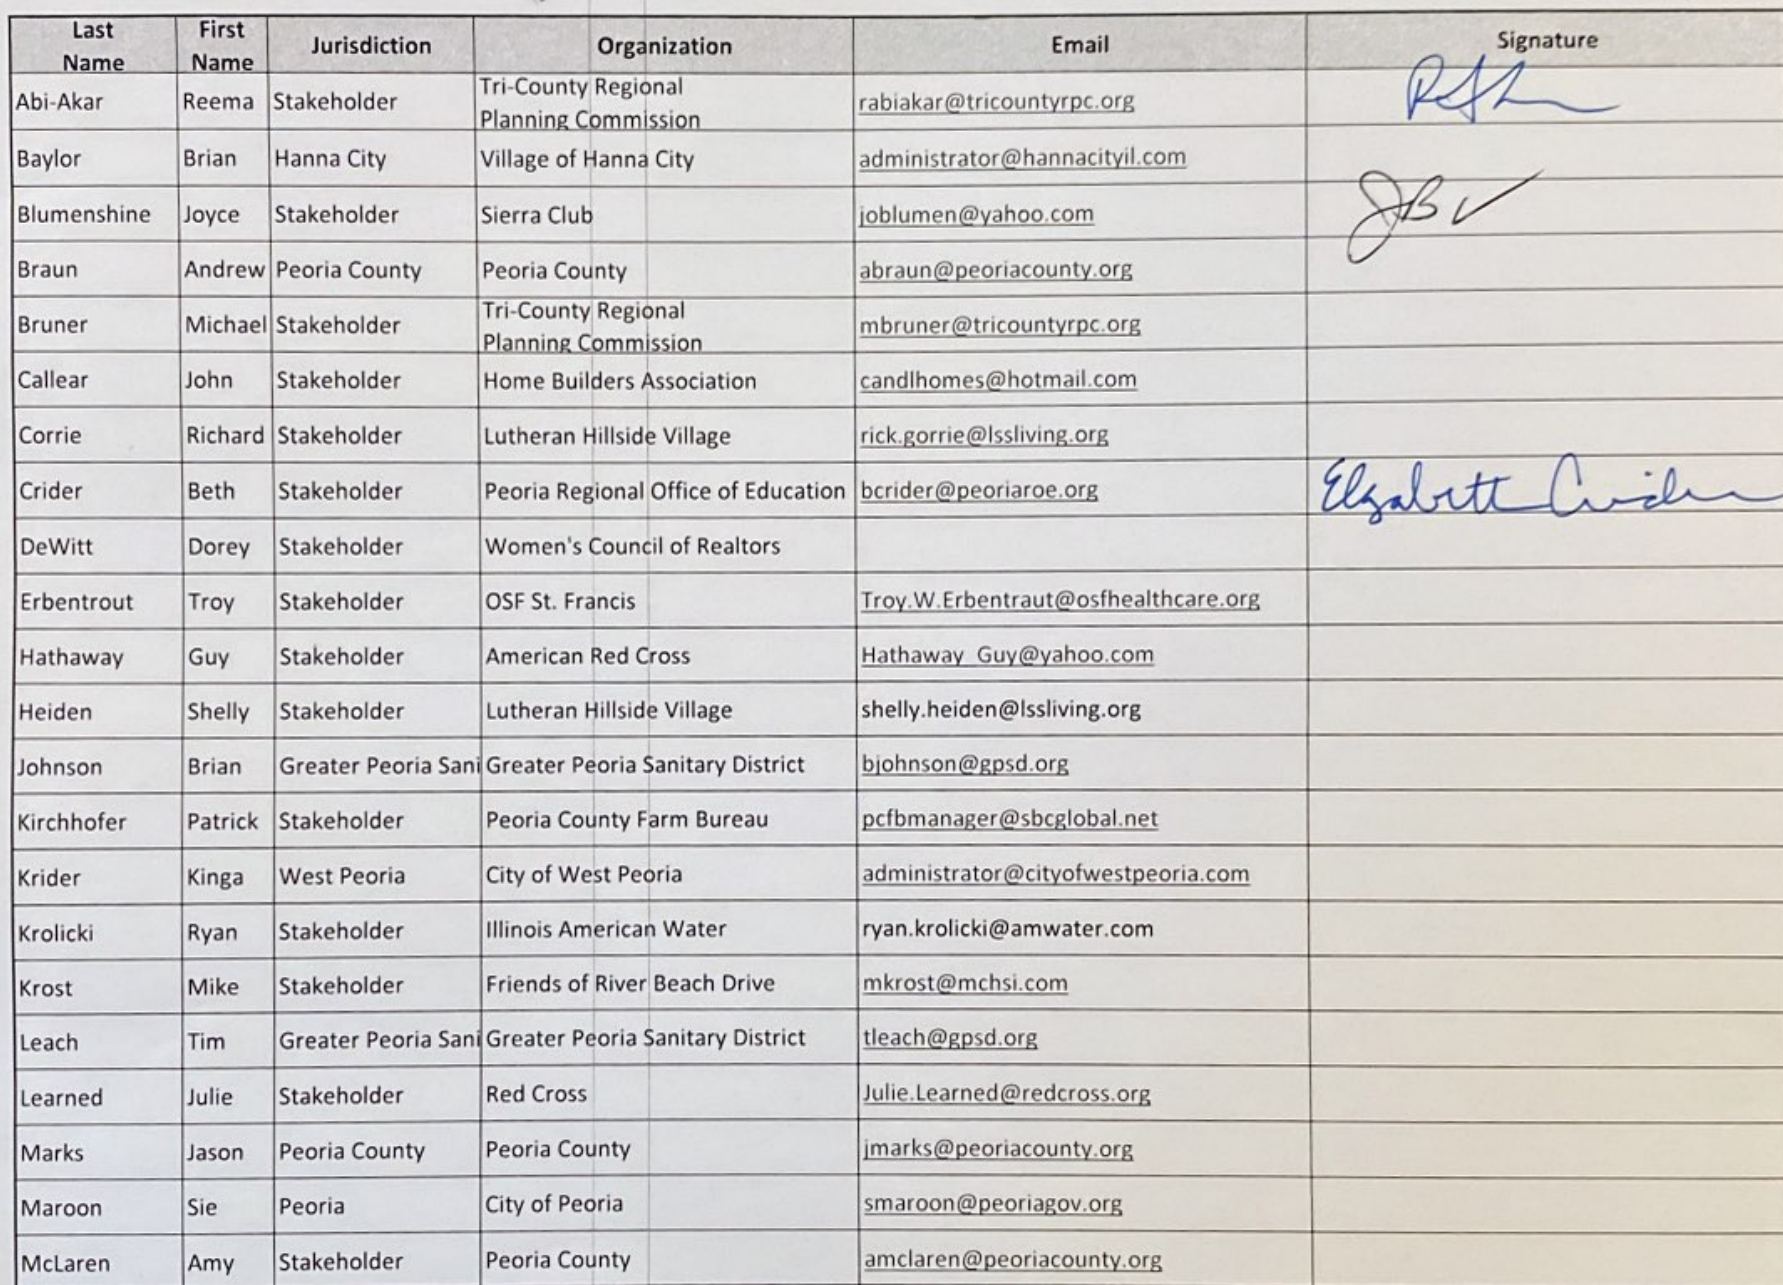 Last Name First Name Jurisdiction Organization Email Signature
Abi-Akar Reema Stakeholder Tri-County Regional Planning Commission rabiakar@tricountyrpc.org
Baylor Brian Hanna City Village of Hanna City administrator@hannacityil.com
Blumenshine Joyce Stakeholder Sierra Club joblumen@yahoo.com JB ✓
Braun Andrew Peoria County Peoria County abraun@peoriacounty.org
Bruner Michael Stakeholder Tri-County Regional Planning Commission mbruner@tricountyrpc.org
Callear John Stakeholder Home Builders Association candlhomes@hotmail.com
Corrie Richard Stakeholder Lutheran Hillside Village rick.gorrie@lssliving.org
Crider Beth Stakeholder Peoria Regional Office of Education bcrider@peoriaroe.org Elizabeth Crider
DeWitt Dorey Stakeholder Women's Council of Realtors
Erbentrout Troy Stakeholder OSF St. Francis Troy.W.Erbentraut@osfhealthcare.org
Hathaway Guy Stakeholder American Red Cross Hathaway_Guy@yahoo.com
Heiden Shelly Stakeholder Lutheran Hillside Village shelly.heiden@lssliving.org
Johnson Brian Greater Peoria Sani Greater Peoria Sanitary District bjohnson@gpsd.org
Kirchhofer Patrick Stakeholder Peoria County Farm Bureau pcfbmanager@sbcglobal.net
Krider Kinga West Peoria City of West Peoria administrator@cityofwestpeoria.com
Krolicki Ryan Stakeholder Illinois American Water ryan.krolicki@amwater.com
Krost Mike Stakeholder Friends of River Beach Drive mkrost@mchsi.com
Leach Tim Greater Peoria Sani Greater Peoria Sanitary District tleach@gpsd.org
Learned Julie Stakeholder Red Cross Julie.Learned@redcross.org
Marks Jason Peoria County Peoria County jmarks@peoriacounty.org
Maroon Sie Peoria City of Peoria smaroon@peoriagov.org
McLaren Amy Stakeholder Peoria County amclaren@peoriacounty.org